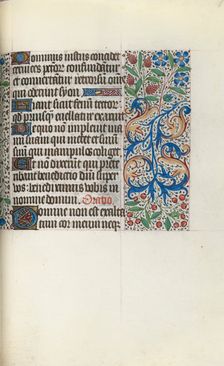 Dominus iustus concidet
cervices peccatorum confundantur
et convertantur retrorsum omnes
qui oderunt syon
Fiant sicut fenum tectorum
quod priusquam evellatur exaruit
De quo non implevit ma
num suam qui metet et sinum
suum qui manipulos colligit
Et non dixerunt qui preteri
bant benedictio domini super
vos benediximus vobis in
nomine domini. Oratio
Domine non est exalta
tum cor meum neque